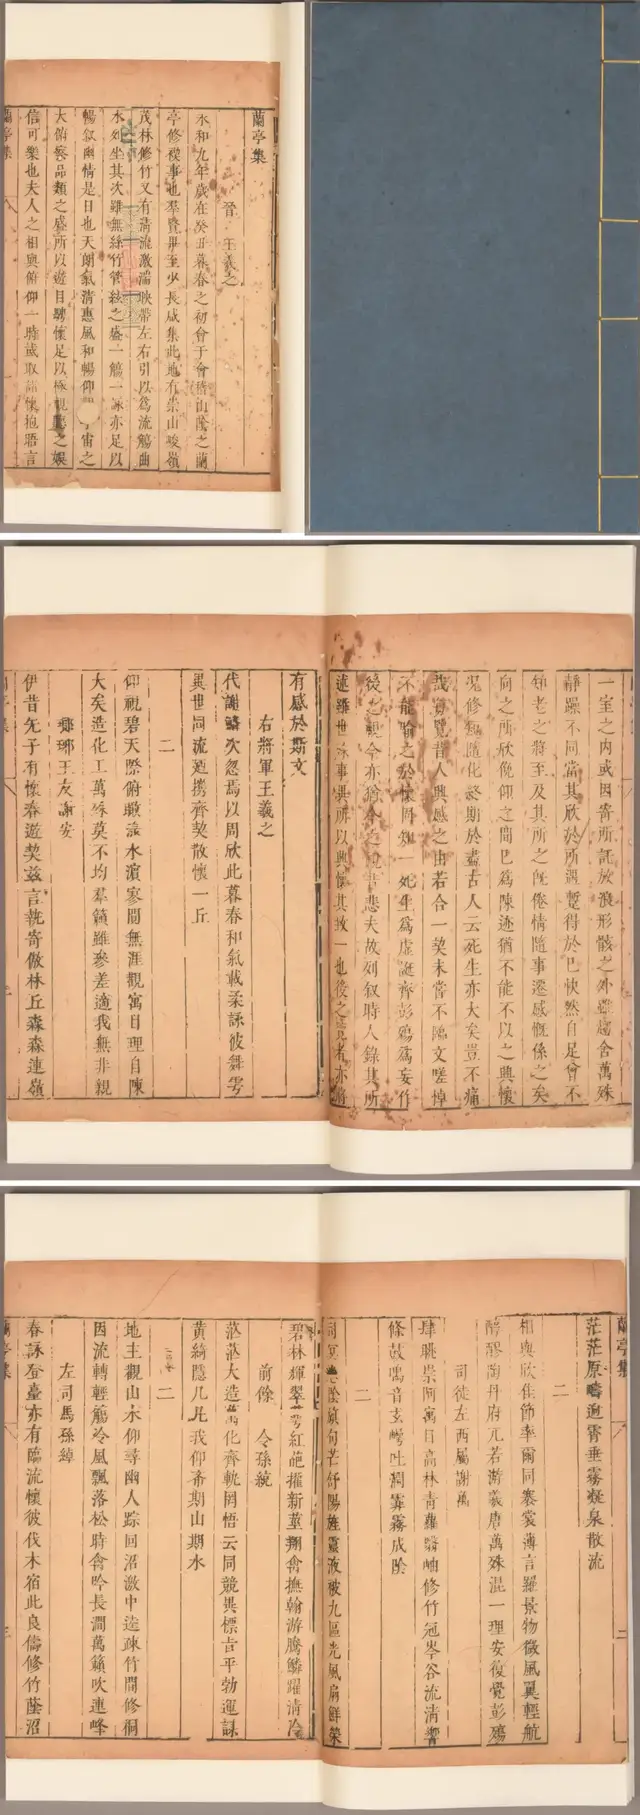 蘭亭集
晉 王羲之
永和九年歲在癸丑暮春之初會于會稽山陰之蘭
亭修禊事也羣賢畢至少長咸集此地有崇山峻嶺
茂林修竹又有清流激湍映帶左右引以爲流觴曲
水列坐其次雖無絲竹管絃之盛一觴一詠亦足以
暢叙幽情是日也天朗氣清惠風和暢仰宇宙之
大俯察品類之盛所以遊目騁懷足以極視聽之娛
信可樂也夫人之相與俯仰一時或取諸懷抱晤言
蘭亭集
一室之内或因寄所託放浪形骸之外雖趣舍萬殊
靜躁不同當其欣於所遇蹔得於已快然自足曾不
知老之將至及其所之旣倦情隨事遷感慨係之矣
向之所欣俛仰之間已爲陳迹猶不能不以之興懷
況修短隨化終期於盡古人云死生亦大矣豈不痛
哉每覽昔人興感之由若合一契未嘗不臨文嗟悼
不能喻之於懷固知一死生爲虛誕齊彭殤爲妄作
後之視今亦猶今之視昔悲夫故列叙時人錄其所
述雖世殊事異所以興懷其致一也後之覽者亦將
有感於斯文
右將軍王羲之
代謝鱗次忽焉以周欣此暮春和氣載柔詠彼舞雩
異世同流廼携齊契散懷一丘
二
仰視碧天際俯瞰淥水濱寥闃無涯觀寓目理自陳
大矣造化工萬殊莫不均羣籟雖參差適我無非親
瑯琊王友謝安
伊昔先子有懷春遊契兹言執寄傲林丘森森連嶺
蘭亭集
二
茫茫原疇逈霄垂霧凝泉散流
二
相與欣佳節率爾同褰裳薄言羅景物微風翼輕航
醇醪陶丹府兀若游羲唐萬殊混一理安復覺彭殤
司徒左西屬謝萬
肆眺崇阿寓目高林青蘿翳岫修竹冠岑谷流清響
條鼓鳴音玄崿吐潤霏霧成陰
二
司冥卷陰旗句芒舒陽旌靈液被九區光風扇鮮榮
碧林輝翠萼紅葩擢新莖翔禽撫翰游騰鱗躍清泠
前餘 令孫統
茫茫大造萬化齊軌罔悟玄同競異標旨平勃運謀
黄綺隱几凡我仰希期山期水
二
地主觀山水仰尋幽人踪回沼激中逵疎竹間修桐
因流轉輕觴冷風飄落松時禽吟長澗萬籟吹連峰
左司馬孫綽
春詠登臺亦有臨流懷彼伐木宿此良儔修竹䕃沼
蘭亭集
三